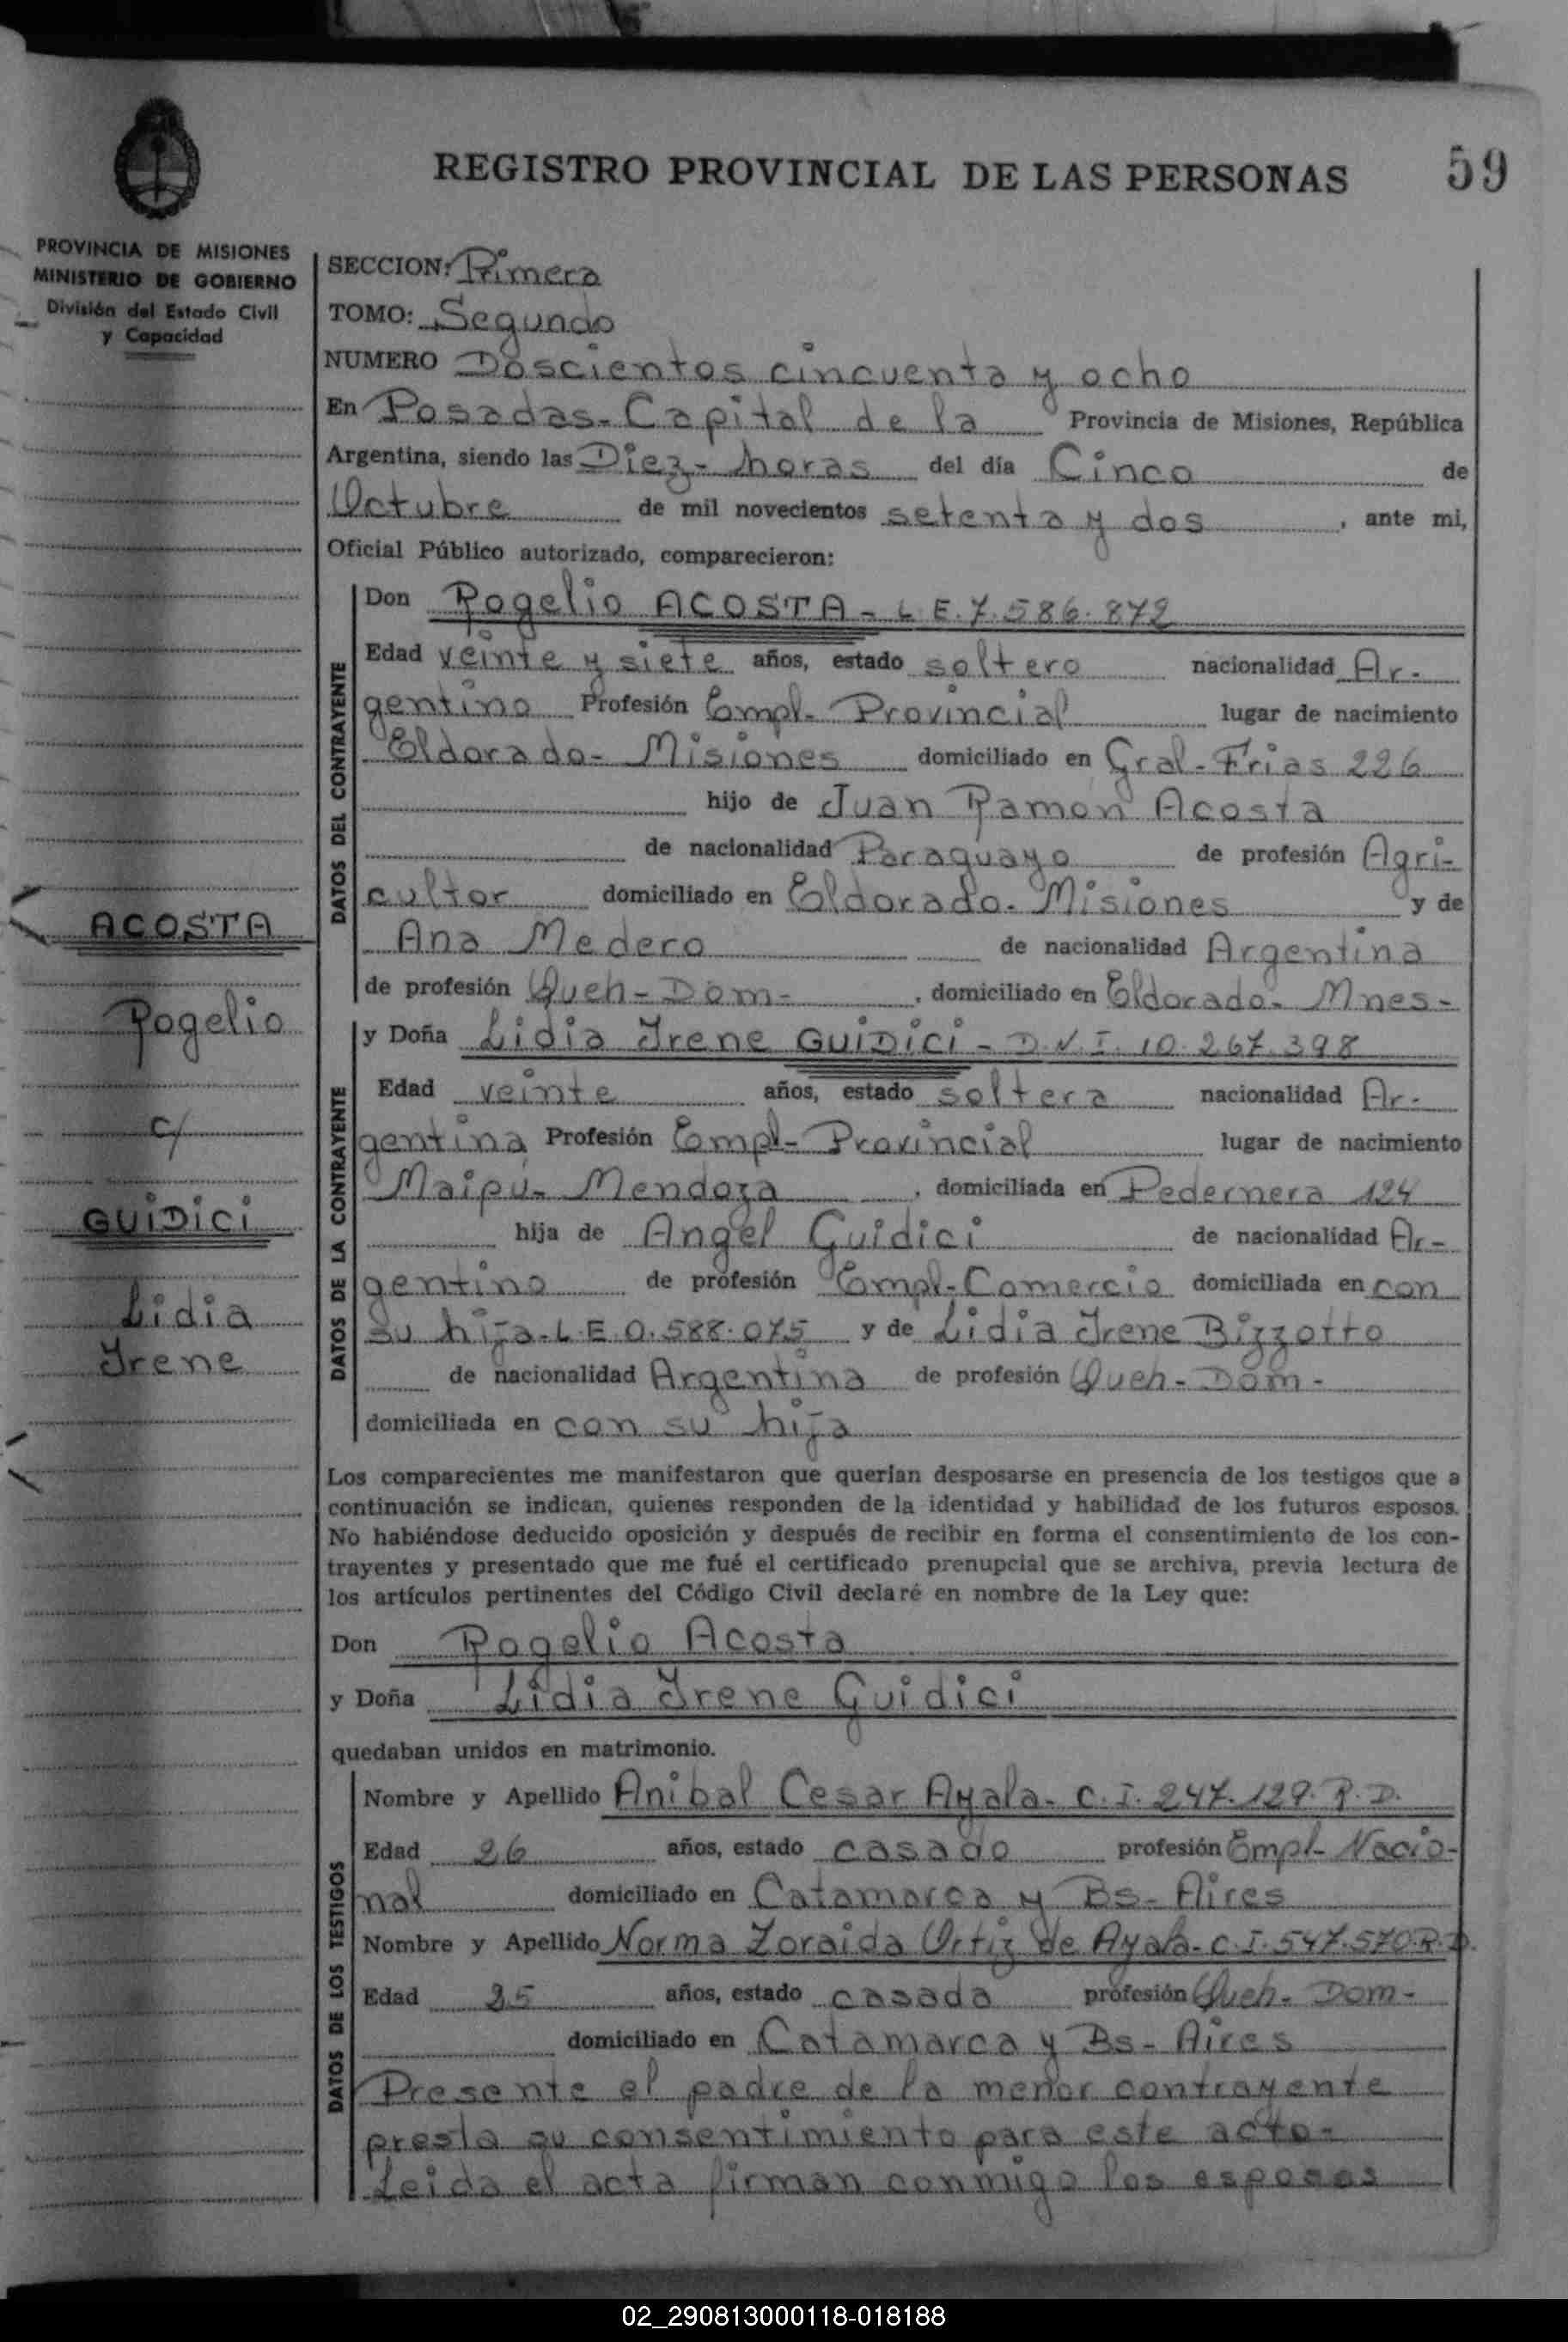 REGISTRO PROVINCIAL DE LAS PERSONAS
59
PROVINCIA DE MISIONES
MINISTERIO DE GOBIERNO
División del Estado Civil
y Capacidad
ACOSTA
Rogelio
c/
GUIDICI
Lidia
Irene
SECCION: Primera
TOMO: Segundo
NUMERO Doscientos cincuenta y ocho
En Posadas- Capital de la Provincia de Misiones, República
Argentina, siendo las Diez- horas del día Cinco de
Octubre de mil novecientos setenta y dos, ante mi,
Oficial Público autorizado, comparecieron:
DATOS DEL CONTRAYENTE
Don Rogelio ACOSTA - L.E. 7.586.872
Edad veinte y siete años, estado soltero nacionalidad Ar-
gentino Profesión Empl- Provincial lugar de nacimiento
Eldorado- Misiones domiciliado en Gral- Frias 226
hijo de Juan Ramon Acosta
de nacionalidad Paraguayo de profesión Agri-
cultor domiciliado en Eldorado- Misiones y de
Ana Medero de nacionalidad Argentina
de profesión Queh- Dom-, domiciliado en Eldorado- Mnes-
DATOS DE LA CONTRAYENTE
y Doña Lidia Irene GUIDICI - D.N.I. 10.267.398
Edad veinte años, estado soltera nacionalidad Ar-
gentina Profesión Empl- Provincial lugar de nacimiento
Maipú- Mendoza, domiciliada en Pedernera 124
hija de Angel Guidici de nacionalidad Ar-
gentino de profesión Empl- Comercio domiciliada en con
su hija- L.E. 0.588.075 y de Lidia Irene Bizzotto
de nacionalidad Argentina de profesión Queh- Dom-
domiciliada en con su hija
Los comparecientes me manifestaron que querían desposarse en presencia de los testigos que a
continuación se indican, quienes responden de la identidad y habilidad de los futuros esposos.
No habiéndose deducido oposición y después de recibir en forma el consentimiento de los con-
trayentes y presentado que me fué el certificado prenupcial que se archiva, previa lectura de
los artículos pertinentes del Código Civil declaré en nombre de la Ley que:
Don Rogelio Acosta
y Doña Lidia Irene Guidici
quedaban unidos en matrimonio.
DATOS DE LOS TESTIGOS
Nombre y Apellido Anibal Cesar Ayala- C.I. 247.129. R.D.
Edad 26 años, estado casado profesión Empl- Nacio-
nal domiciliado en Catamarca y Bs- Aires
Nombre y Apellido Norma Zoraida Ortiz de Ayala- C.I. 547.570. R.D.
Edad 25 años, estado casada profesión Queh- Dom-
domiciliado en Catamarca y Bs- Aires
Presente el padre de la menor contrayente
presta su consentimiento para este acto-
Leida el acta firman conmigo los esposos
02_290813000118-018188